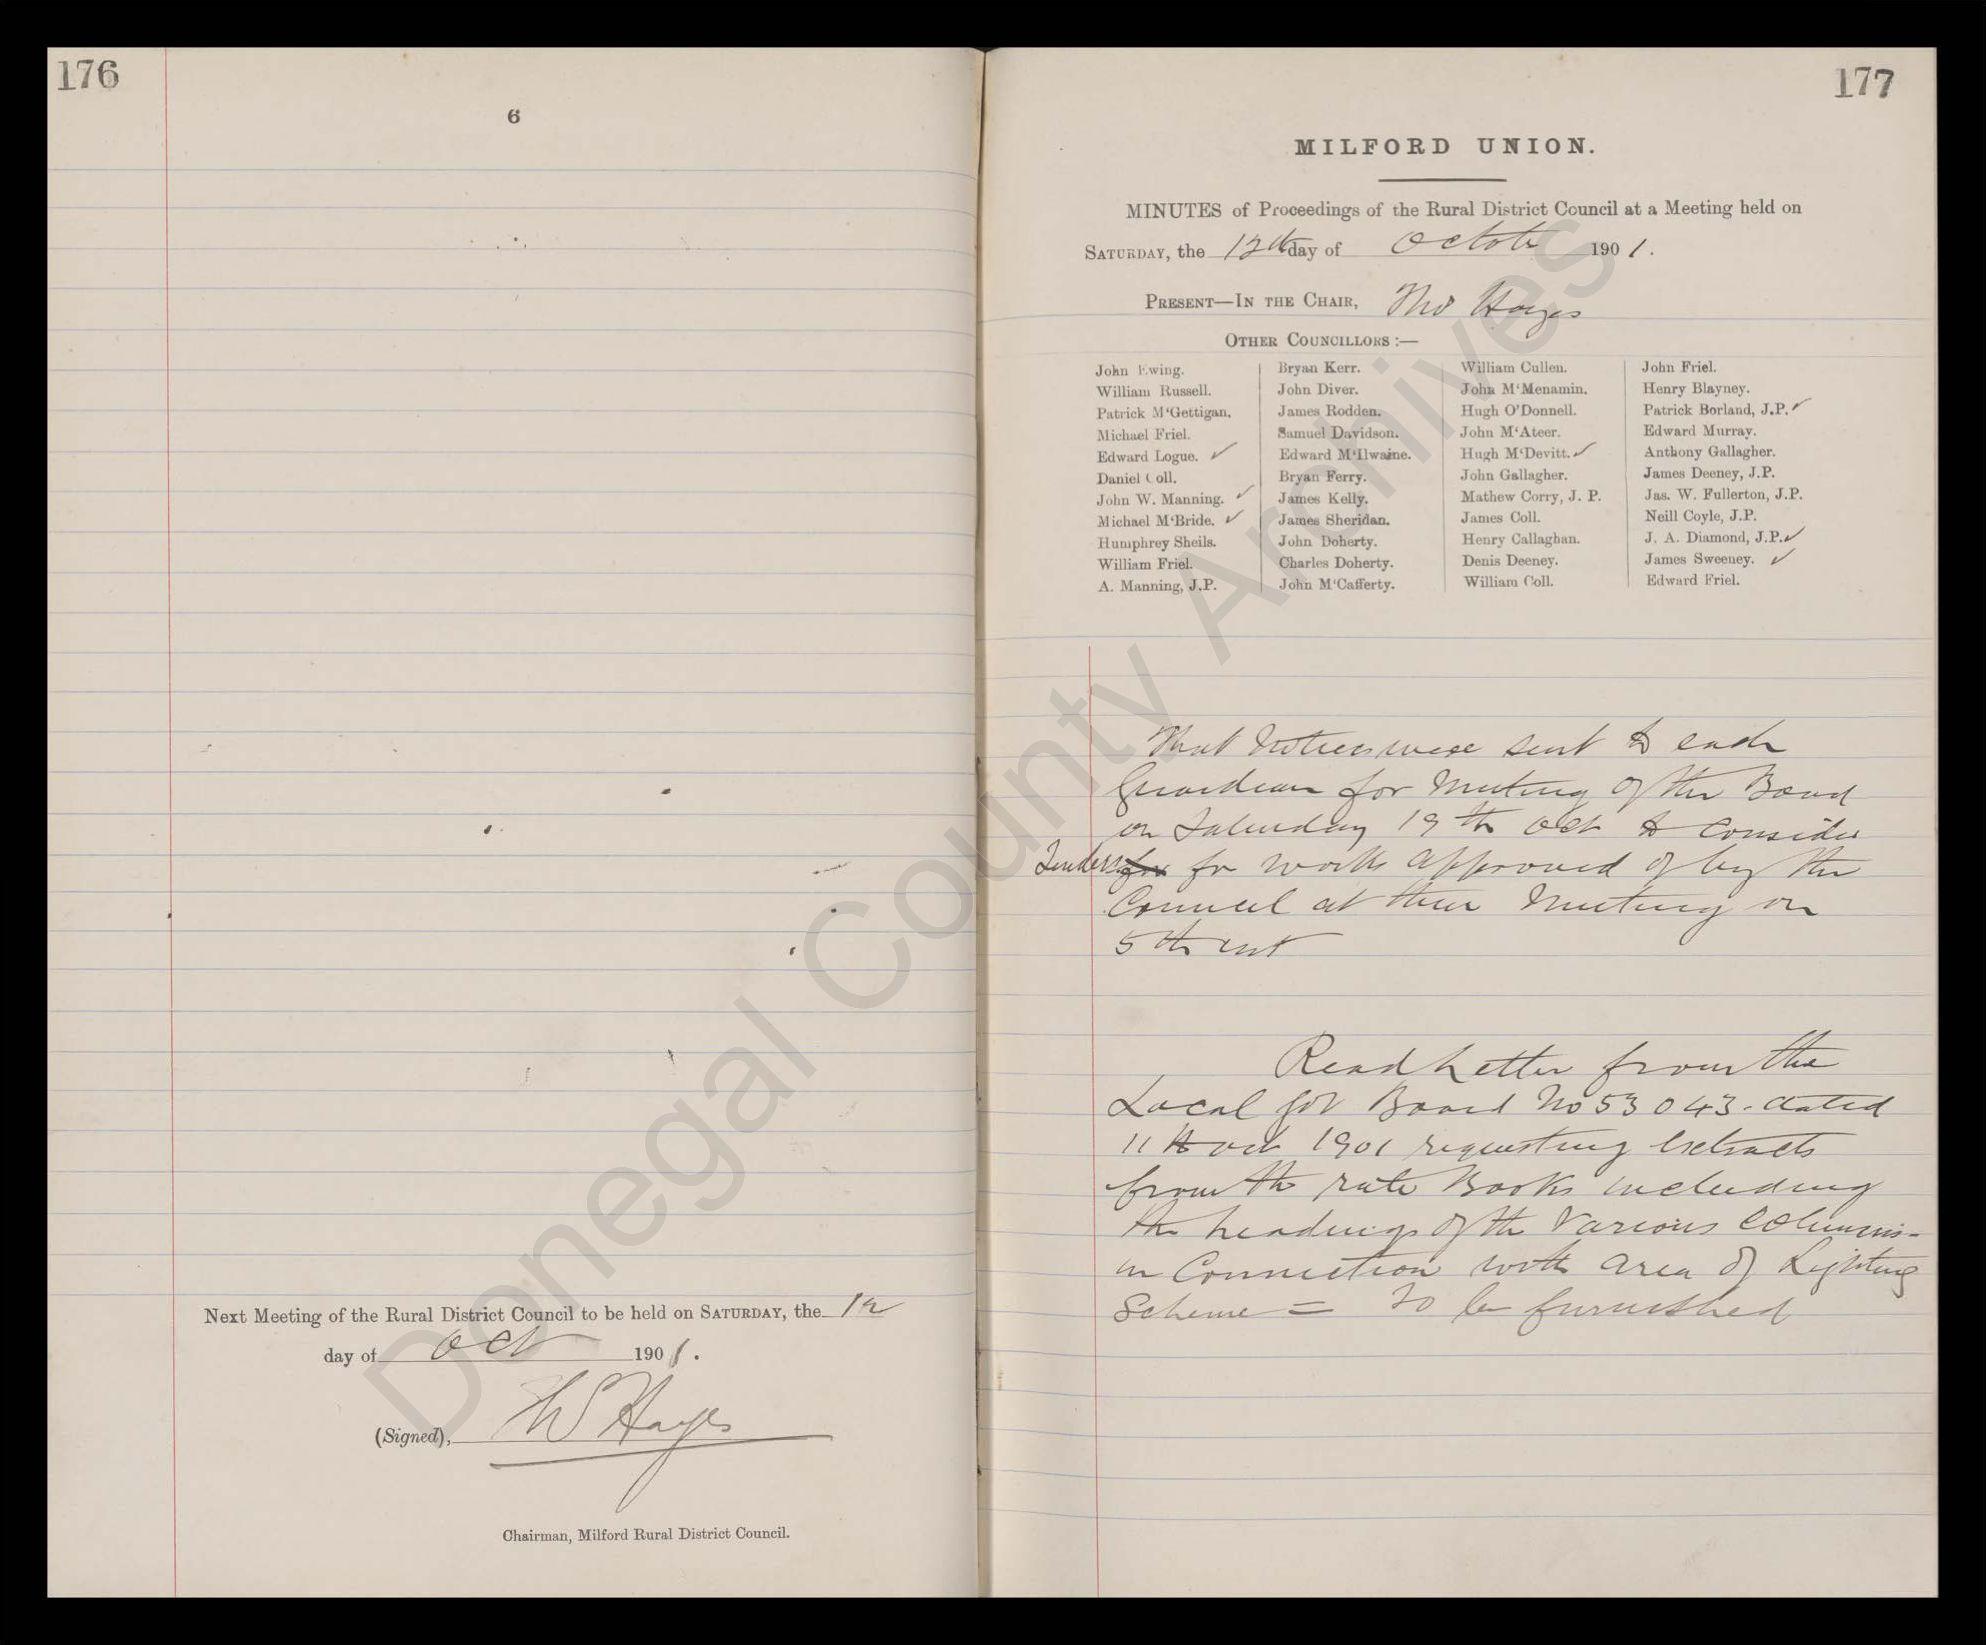 176
6
Next Meeting of the Rural District Council to be held on SATURDAY, the 12
day of Oct 1901.
(Signed), Hayes
Chairman, Milford Rural District Council.
177
MILFORD UNION.
MINUTES of Proceedings of the Rural District Council at a Meeting held on
SATURDAY, the 12th day of October 1901.
PRESENT—IN THE CHAIR, Hayes
OTHER COUNCILLORS :—
John Ewing.
William Russell.
Patrick M‘Gettigan.
Michael Friel.
Edward Logue. ✓
Daniel Coll.
John W. Manning. ✓
Michael M‘Bride. ✓
Humphrey Sheils.
William Friel.
A. Manning, J.P.
Bryan Kerr.
John Diver.
James Rodden.
Samuel Davidson.
Edward M‘Ilwaine.
Bryan Ferry.
James Kelly.
James Sheridan.
John Doherty.
Charles Doherty.
John M‘Cafferty.
William Cullen.
John M‘Menamin.
Hugh O’Donnell.
John M‘Ateer.
Hugh M‘Devitt. ✓
John Gallagher.
Mathew Corry, J. P.
James Coll.
Henry Callaghan.
Denis Deeney.
William Coll.
John Friel.
Henry Blayney.
Patrick Borland, J.P. ✓
Edward Murray.
Anthony Gallagher.
James Deeney, J.P.
Jas. W. Fullerton, J.P.
Neill Coyle, J.P.
J. A. Diamond, J.P. ✓
James Sweeney. ✓
Edward Friel.
That Notices were sent to each
Guardian for Meeting of the Board
on Saturday 19th Oct to consider
Tenders for for work approved of by the
Council at their Meeting on
5th inst
Read Letter from the
Local Gov Board No 53043 - dated
11th Oct 1901 requesting Extracts
from the rate Books including
the headings of the Various Columns -
in Connection with area of Lighting
Scheme = To be furnished
Donegal County Archives